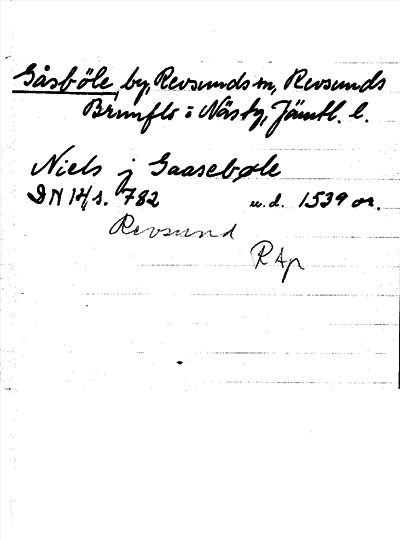 Gåsböle, by, Revsunds sn, Revsunds
Brunflo o Näs tg, Jämtl. l.
Niels j Gaasebøle
DN 14/1 s. 782 u.d. 1539 or.
Revsund
RAp